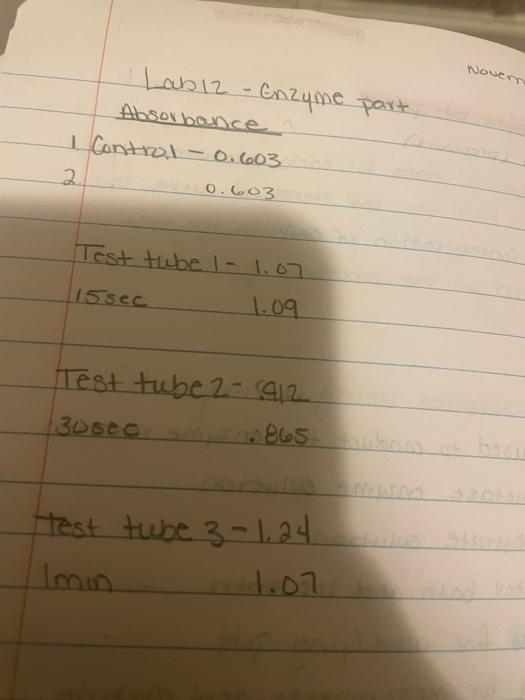 Novem
Lab 12 - Enzyme part
Absorbance
1 Control - 0.603
2 0.603
Test tube 1 - 1.07
15sec 1.09
Test tube 2 - .912
30sec .865
test tube 3 - 1.24
1min 1.07